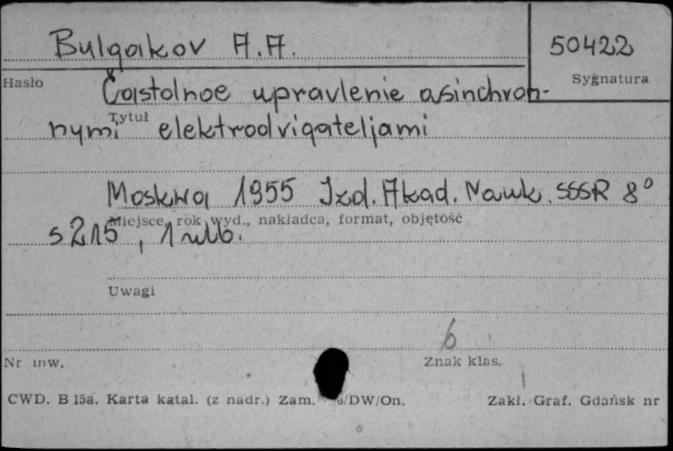 Bulgakov A.A.
50422
Hasło
Sygnatura
Častotnoe upravlenie asinchron-
Tytuł
nymi elektrodvigateljami
Moskwa 1955 Izd. Akad. Nauk SSSR 8°
Miejsce, rok wyd., nakładca, format, objętość
s 215, 1 nlb.
Uwagi
6
Nr inw.
Znak klas.
CWD. B 15a. Karta katal. (z nadr.) Zam. /DW/On.
Zakł. Graf. Gdańsk nr